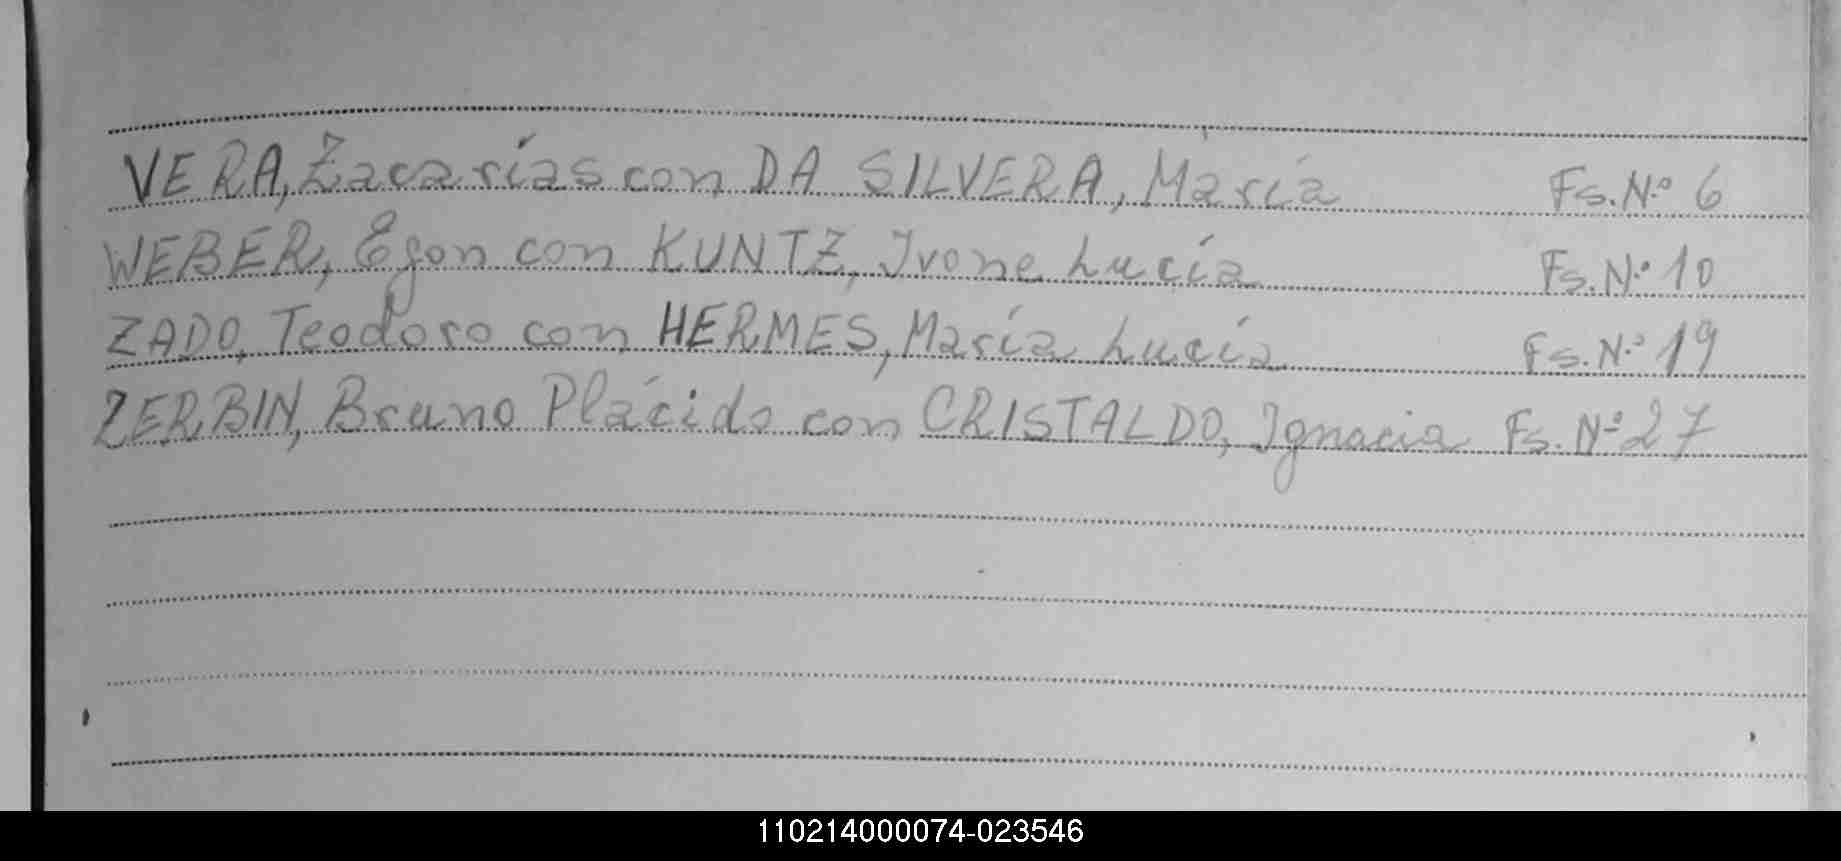 VERA, Zacarías con DA SILVERA, María Fs. Nº 6
WEBER, Egon con KUNTZ, Ivone Lucía Fs. Nº 10
ZADO, Teodoro con HERMES, María Lucía Fs. Nº 19
ZERBIN, Bruno Plácido con CRISTALDO, Ignacia Fs. Nº 27
110214000074-023546